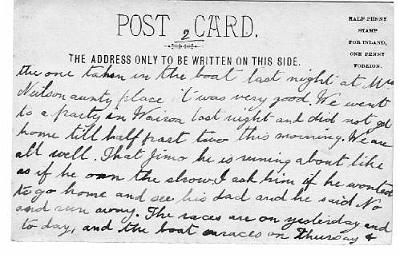 POST CARD.
2
HALF PENNY
STAMP
FOR INLAND,
ONE PENNY
FOREIGN.
THE ADDRESS ONLY TO BE WRITTEN ON THIS SIDE.
the one taken in the boat last night at Mrs
Neilson aunty place it was very good. We went
to a party in last night and did not get
home till half past two this morning. We are
all well. That Jimo he is runing about like
as if he own the show. I ask him if he wonted
to go home and see his dad and he said No
and run away. The races are on yesterday and
to day, and the boat races on Thursday &